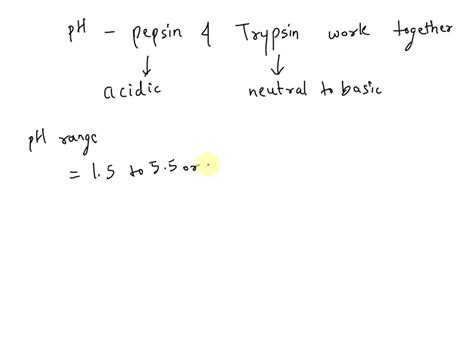 pH - pepsin & Trypsin work together
acidic neutral to basic
pH range
= 1.5 to 5.5 or